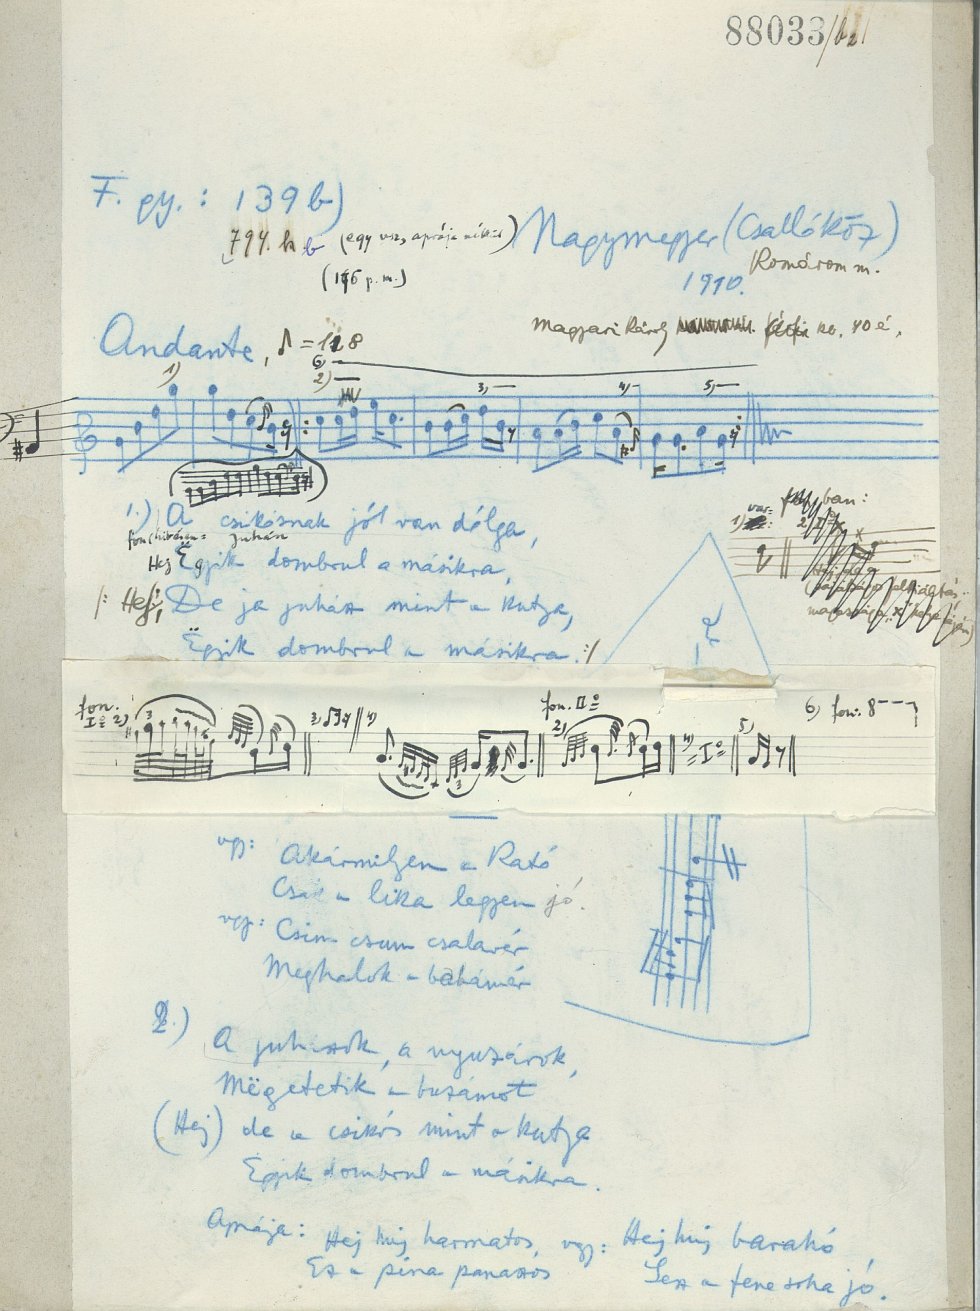 88033/b2
F. gy.: 139 b)
794. b (egy vsz, aprája nélkül)
Nagymegyer (Csallóköz)
(116 p. m.)
Komárom m.
1910.
Magyari Károly kb. 40 é.
Andante, ♪ = 128
6)
1) 2) 3) 4) 5)
1.) A csikósnak jól van dólga,
juhász
Hej Ëgyik dombrul a másikra,
/: Hej, De ja juhász mint a kutya,
Ëgyik dombrul a másikra. :/
var.
1)
fon. Iº 2) 3) 4) fon. IIº 2) 4) = Iº 5) 6) fon. 8
vagy: Akármilyen a Kató
Csak a lika legyen jó.
vagy: Csim csum csalavér
Meghalok a babámér
2.) A juhászok, a nyuzárok,
Mëgetetik a buzámot
(Hej) de a csikós mint a kutya
Ëgyik dombrul a másikra.
Aprája: Hej huj harmatos, vagy: Hej huj barakó
Ez a pina panaszos Lesz a fene soha jó.